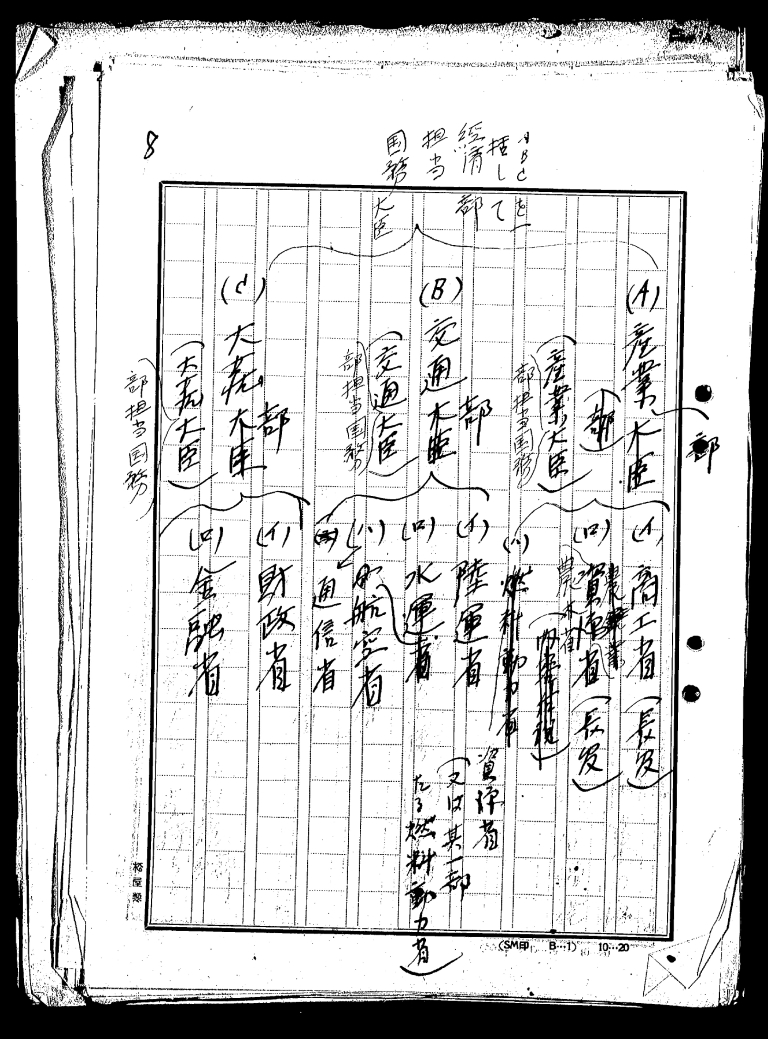 8
ABCを一
括して
経済部
担当
国務大臣
(A) 産業大臣
部
部
(産業大臣)
部担当国務
(イ) 商工省(長官)
(ロ) 資源省(長官)
農林省
(ハ) 燃料動力省
資源省
(又は其一部
たる燃料動力省)
(B) 交通大臣
部
(交通大臣)
部担当国務
(イ) 陸運省
(ロ) 水運省
(ハ) 航空省
通信省
(C) 大蔵大臣
部
(大蔵大臣)
部担当国務
(イ) 財政省
(ロ) 金融省
(SM印 B…1) 10…20